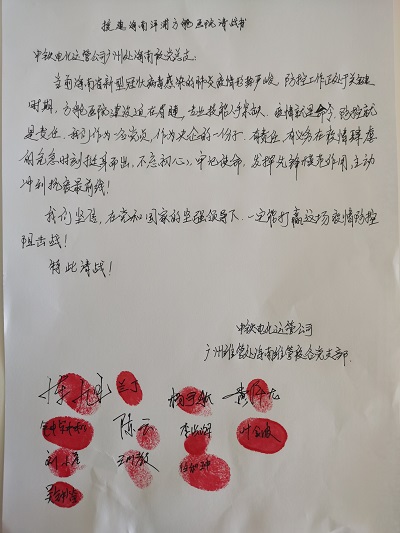 援建海南洋浦方舱医院请战书
中铁电化运管公司广州处海南联合党支:
当前海南省新型冠状病毒感染的肺炎疫情形势严峻,防控工作正处于关键
时期,方舱医院建设迫在眉睫,专业技能人手紧缺。疫情就是命令,防控就
是责任。我们作为一名党员,作为央企的一份子,有责任,有义务在疫情肆虐
的危急时刻挺身而出,不忘初心,牢记使命,发挥先锋模范作用,主动
冲到抗疫最前线!
我们坚信,在党和国家的坚强领导下,一定能打赢这场疫情防控
阻击战!
特此请战!
中铁电化运管公司
广州维管处海南维管段联合党支部
兰丁
陈云